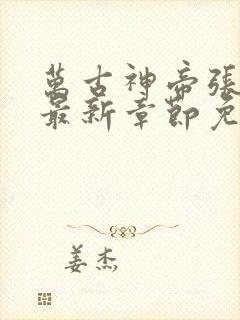 萬古神帝張
最新章節免
姜杰